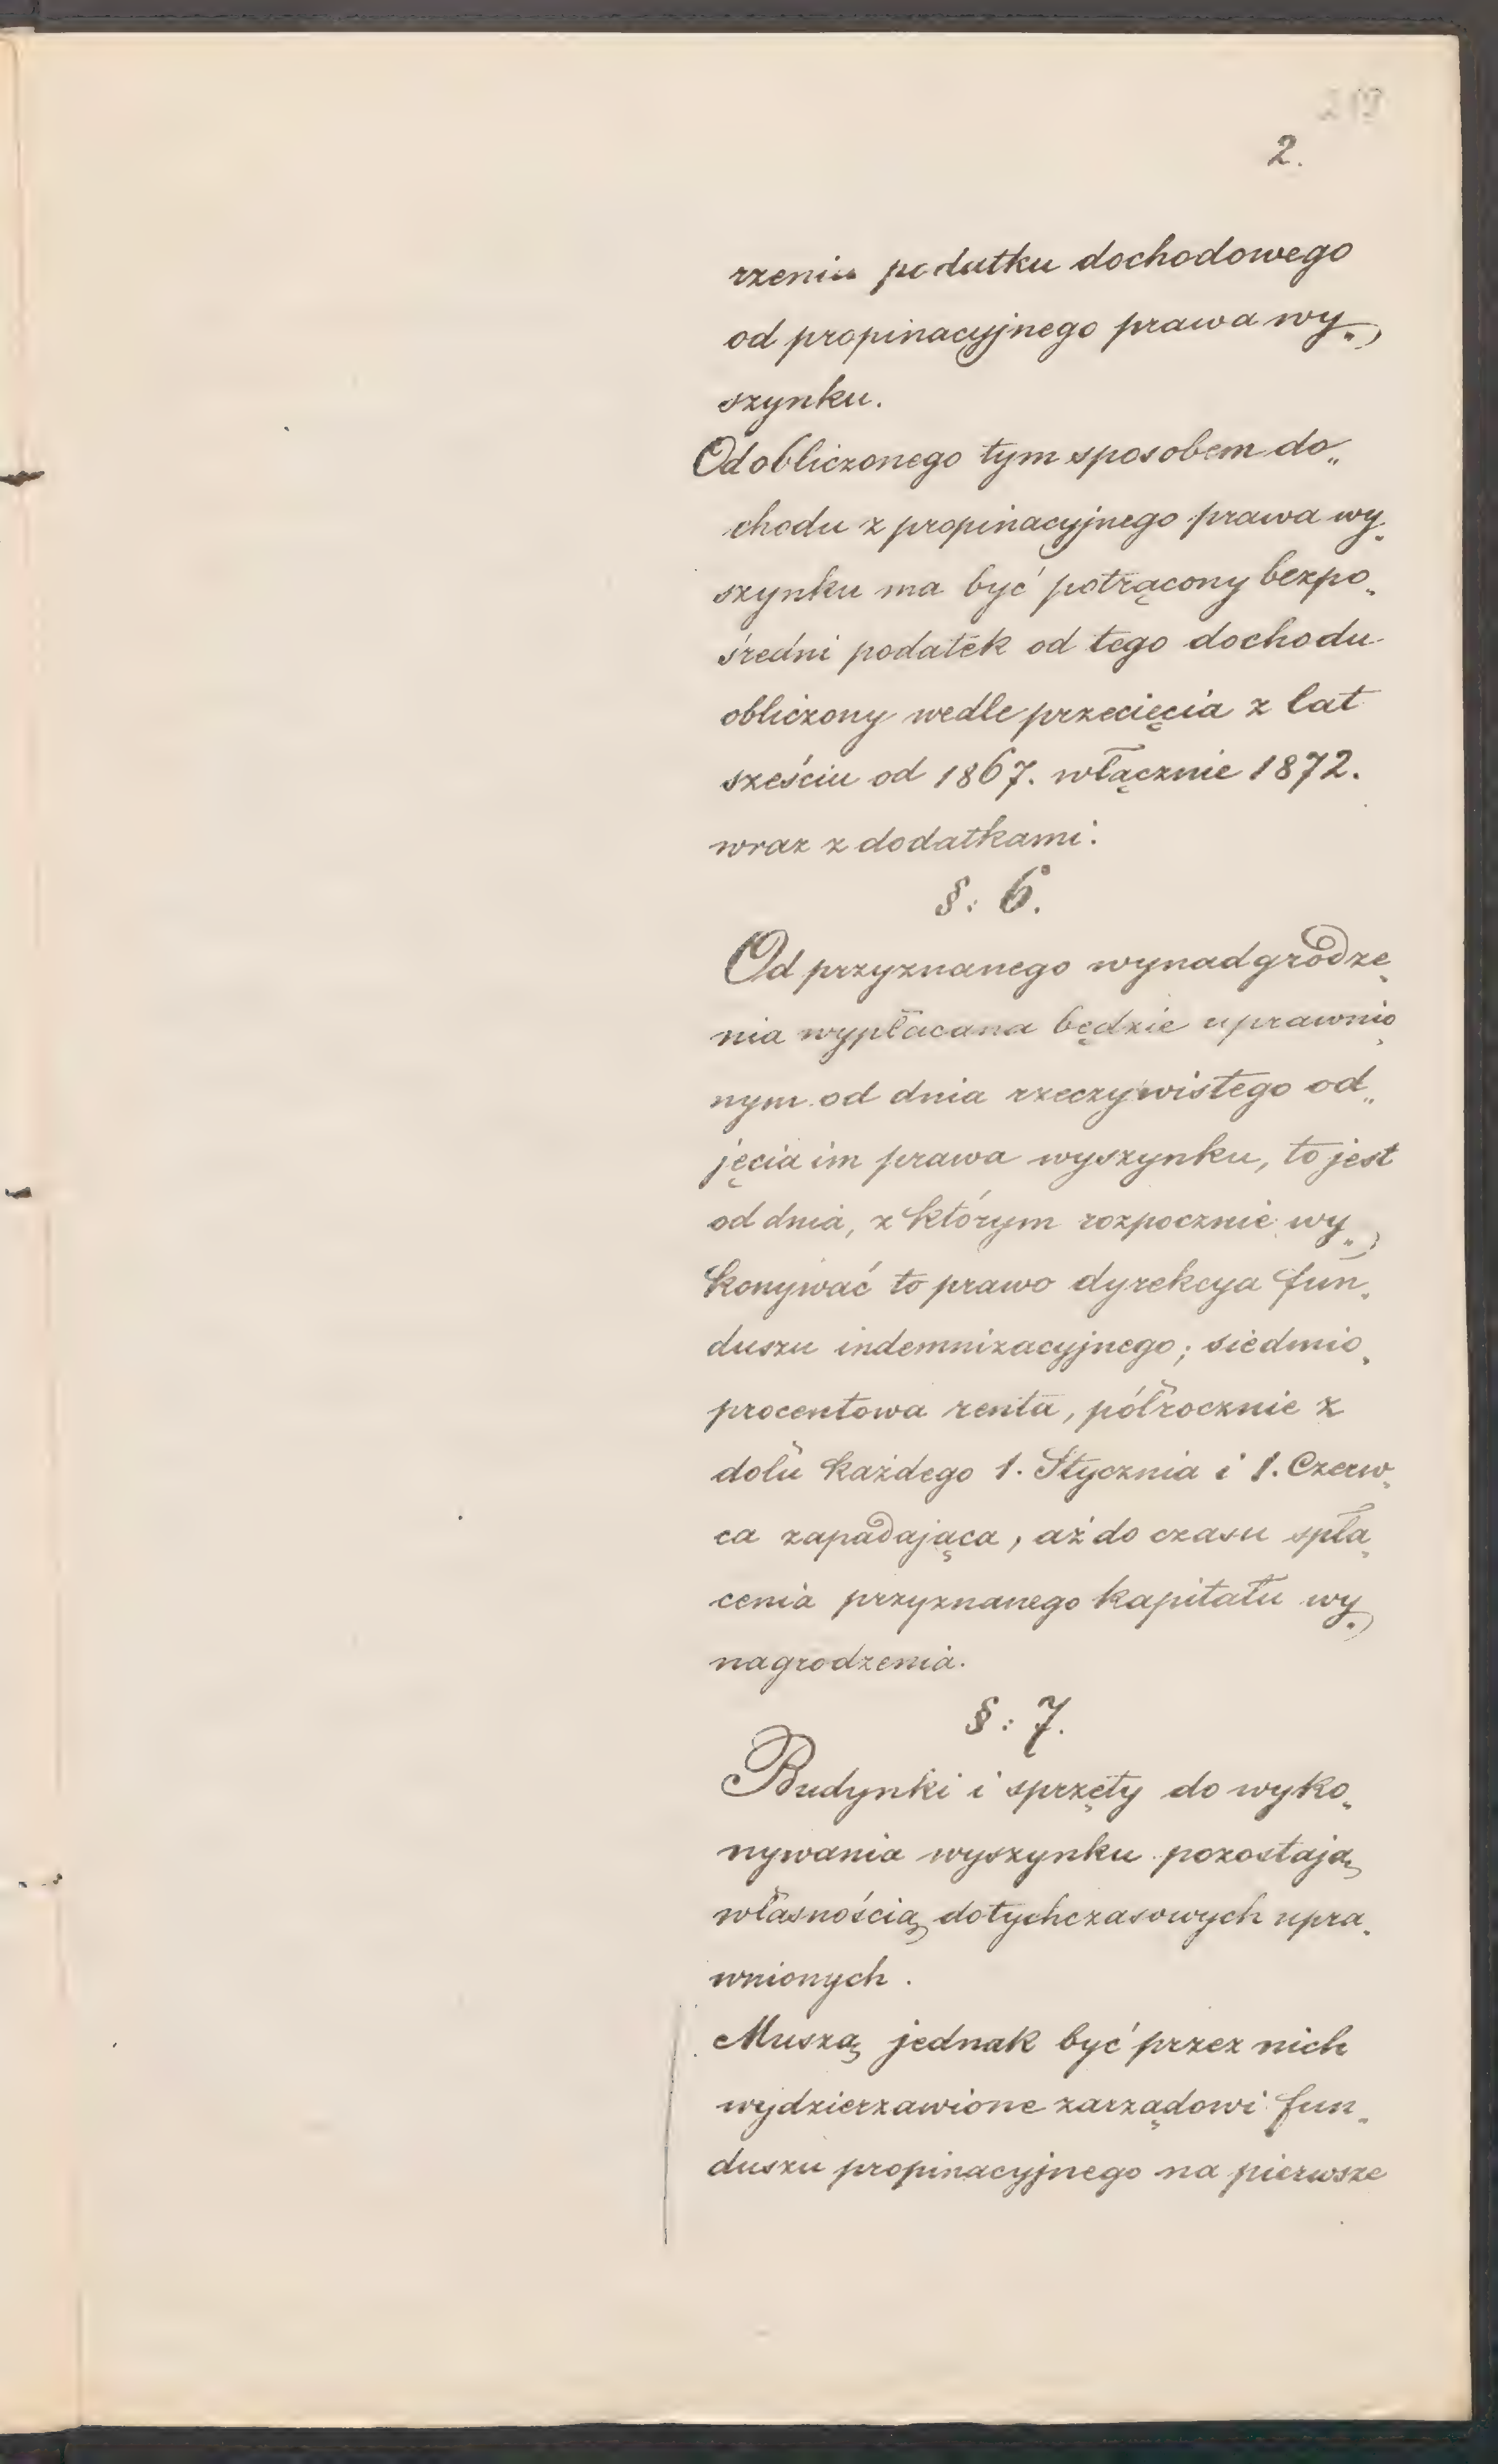 2.
rzenia podatku dochodowego
od propinacyjnego prawa wy„
szynku.
Od obliczonego tym sposobem do„
chodu z propinacyjnego prawa wy„
szynku ma być potrącony bezpo„
średni podatek od tego dochodu
obliczony wedle przecięcia z lat
sześciu od 1867. włącznie 1872.
wraz z dodatkami.
§: 6.
Od przyznanego wynadgrodze„
nia wypłacana będzie uprawnio„
nym od dnia rzeczywistego od„
jęcia im prawa wyszynku, to jest
od dnia, z którym rozpocznie wy„
konywać to prawo dyrekcya fun„
duszu indemnizacyjnego; siedmio„
procentowa renta, półrocznie z
dołu każdego 1. Stycznia i 1. Czerw„
ca zapadająca, aż do czasu spła„
cenia przyznanego kapitału wy„
nagrodzenia.
§: 7.
Budynki i sprzęty do wyko„
nywania wyszynku pozostają
własnością dotychczasowych upra„
wnionych.
Muszą jednak być przez nich
wydzierzawione zarządowi fun„
duszu propinacyjnego na pierwsze